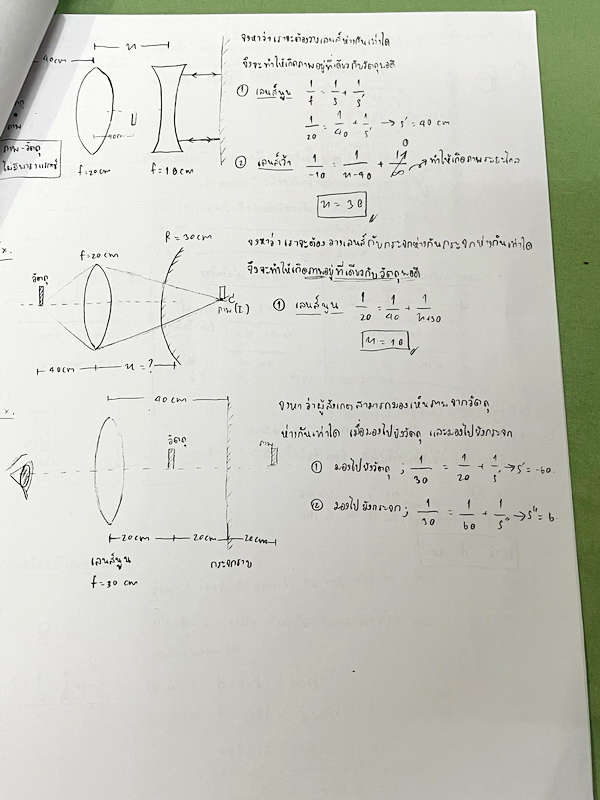 จงหาว่าเราจะต้องวางเลนส์ห่างกันเท่าใด
จึงจะทำให้เกิดภาพอยู่ที่เดียวกับวัตถุพอดี
40cm
n
ภาพ
ภาพ-วัตถุ
40cm
f=20cm
f=10cm
① เลนส์นูน 1/f = 1/s + 1/s'
1/20 = 1/40 + 1/s' → s' = 40 cm
② เลนส์เว้า 1/-10 = 1/n-40 + 1/∞ 0 ทำให้เกิดภาพระยะไกล
n = 30
จงหาว่าเราจะต้องวางเลนส์กับกระจกห่างกันกระจกห่างกันเท่าใด
จึงจะทำให้เกิดภาพอยู่ที่เดียวกับวัตถุพอดี
x.
R = 30cm
f=20cm
วัตถุ
C
ภาพ(I)
40cm
n = ?
① เลนส์นูน 1/20 = 1/40 + 1/n+30
n = 10
x.
40 cm
วัตถุ
ภาพ
20cm
20cm
20cm
เลนส์นูน
f = 30 cm
กระจกราบ
จงหาว่าผู้สังเกตสามารถมองเห็นภาพจากวัตถุ
ห่างกันเท่าใด เมื่อมองไปยังวัตถุ และมองไปยังกระจก
① มองไปยังวัตถุ ; 1/30 = 1/20 + 1/s' → s' = -60
② มองไปยังกระจก ; 1/30 = 1/60 + 1/s" → s" = 6